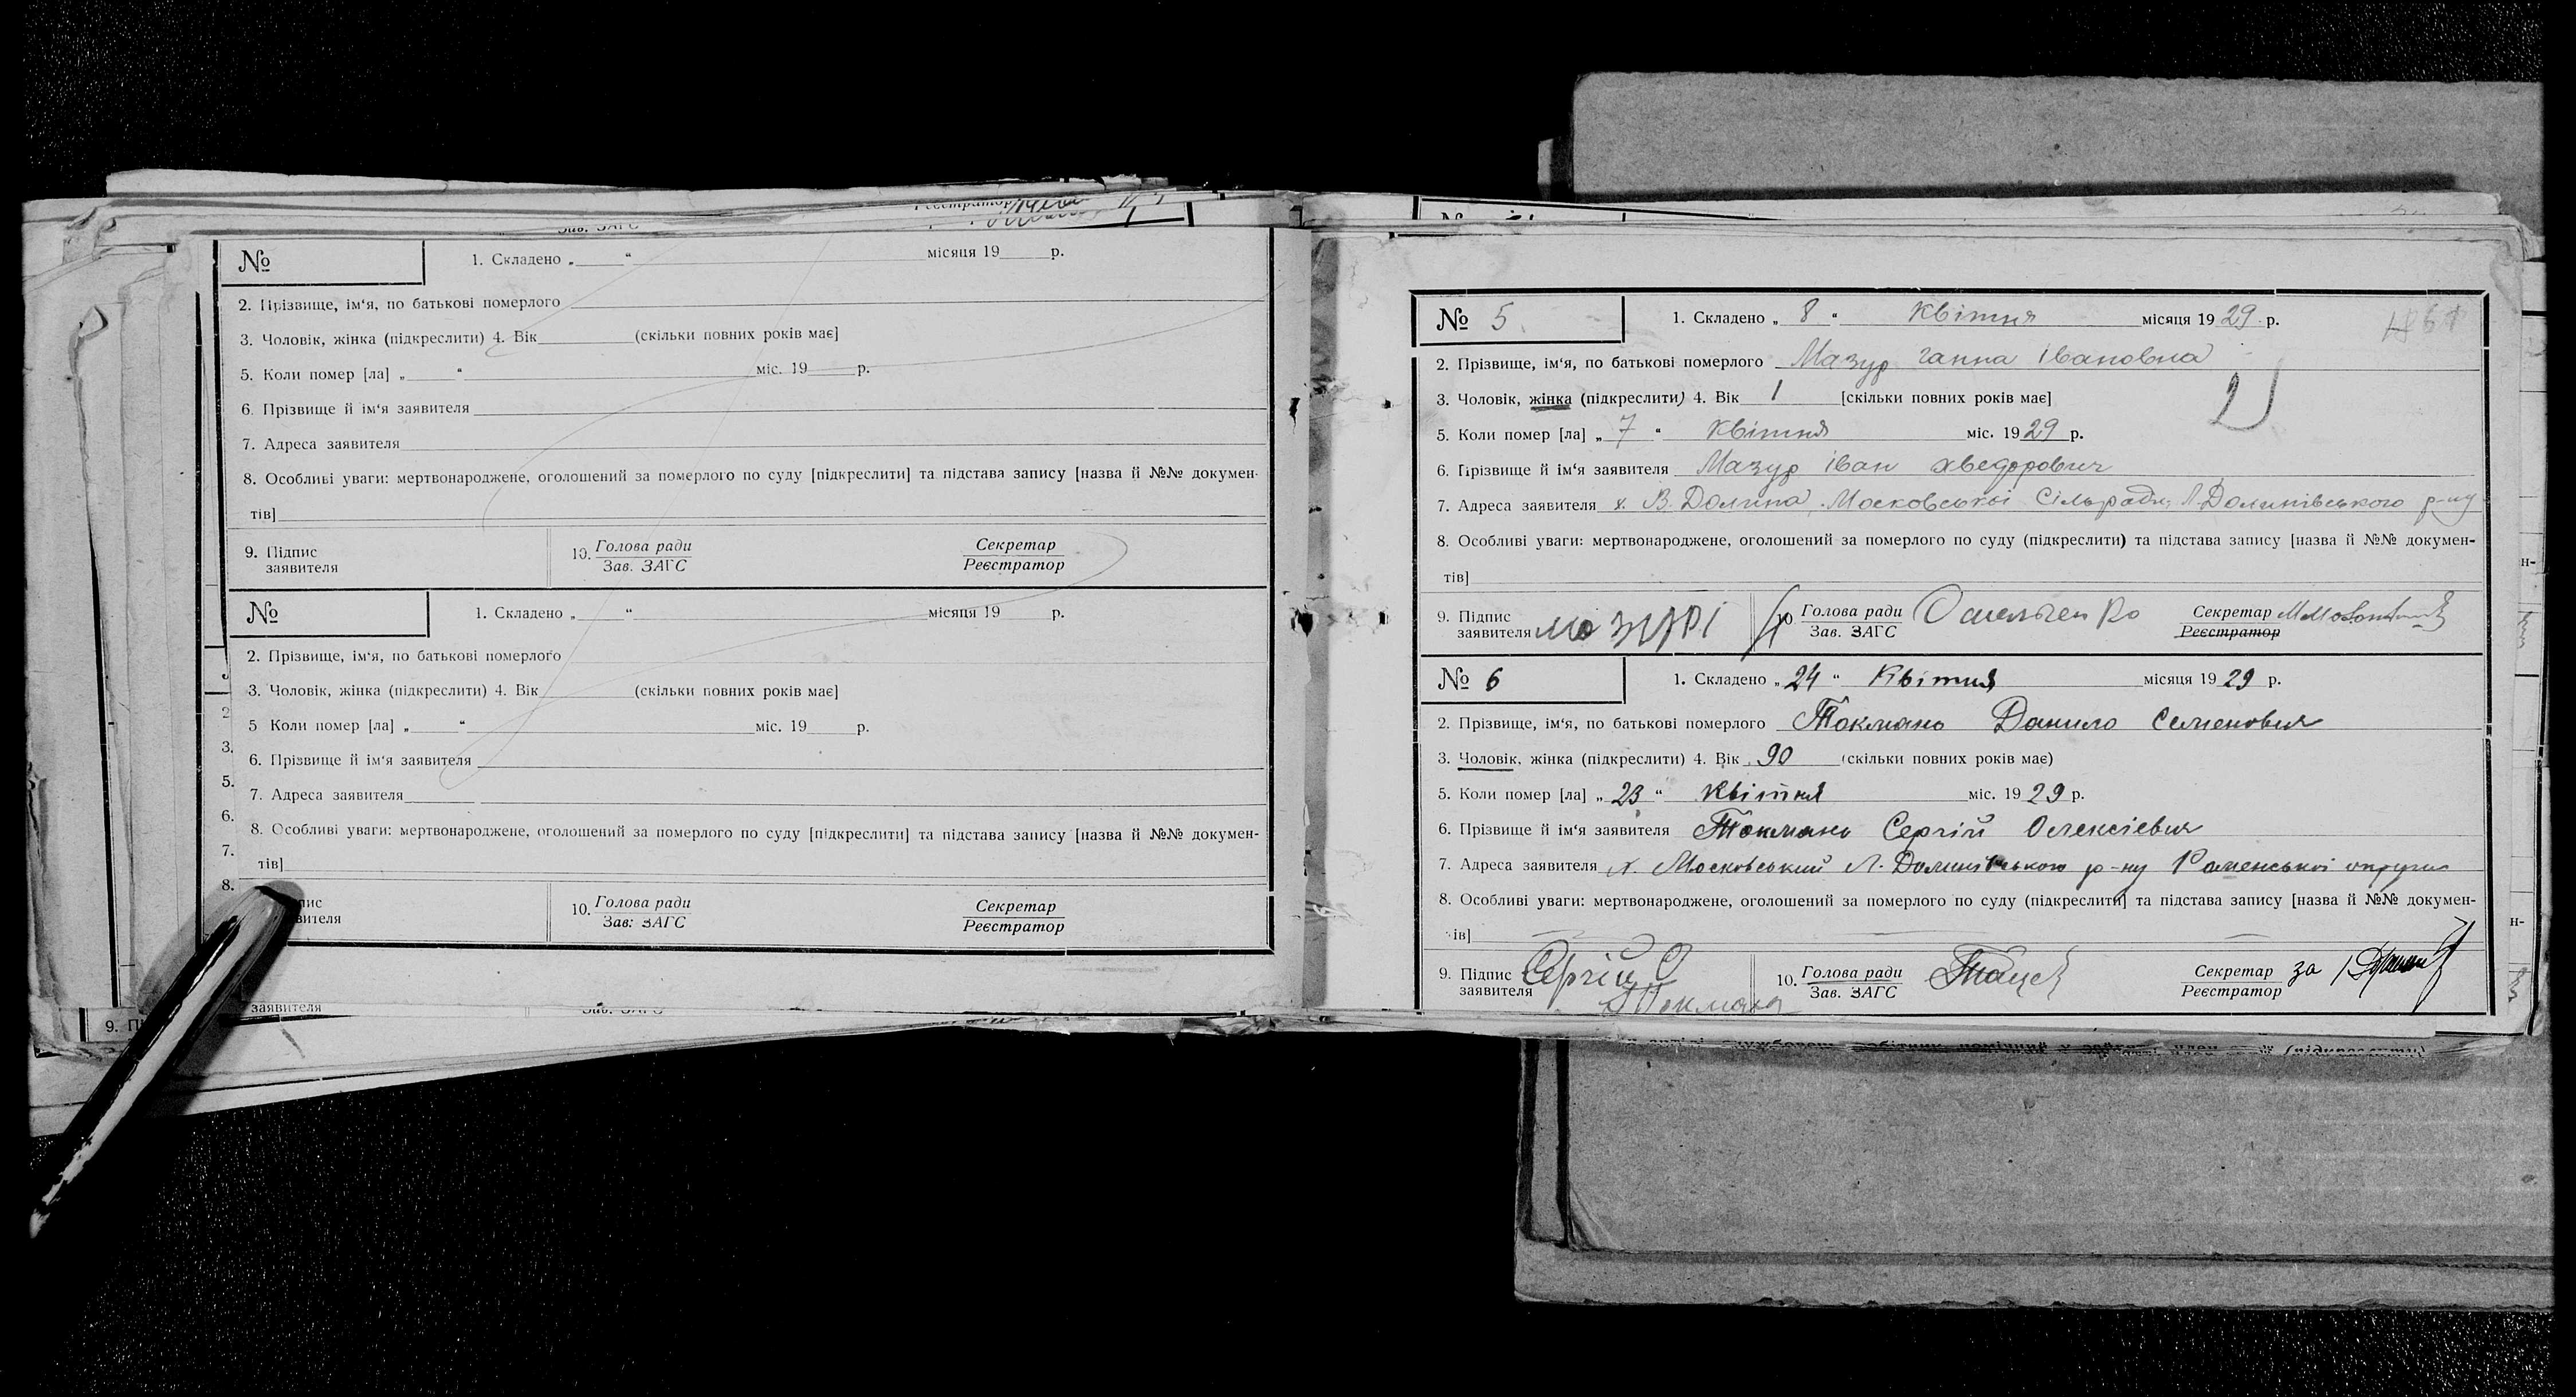 № 1. Складено „ “ місяця 19 р.
2. Прізвище, ім‘я, по батькові померлого
3. Чоловік, жінка (підкреслити) 4. Вік (скільки повних років має]
5. Коли помер [ла] „ “ міс. 19 р.
6. Прізвище й ім‘я заявителя
7. Адреса заявителя
8. Особливі уваги: мертвонароджене, оголошений за померлого по суду [підкреслити] та підстава запису [назва й №№ докумен-
тів]
9. Підпис заявителя 10. Голова ради Зав. ЗАГС Секретар Реєстратор
№ 1. Складено „ “ місяця 19 р.
2. Прізвище, ім‘я, по батькові померлого
3. Чоловік, жінка (підкреслити) 4. Вік (скільки повних років має]
5 Коли помер [ла] „ “ міс. 19 р.
6. Прізвище й ім‘я заявителя
7. Адреса заявителя
8. Особливі уваги: мертвонароджене, оголошений за померлого по суду [підкреслити] та підстава запису [назва й №№ докумен-
тів]
10. Голова ради Зав: ЗАГС Секретар Реєстратор
заявителя
№ 5 1. Складено „ 8 “ Квітня місяця 19 29 р.
2. Прізвище, ім‘я, по батькові померлого Мазур Ганна Івановна
3. Чоловік, жінка (підкреслити) 4. Вік 1 [скільки повних років має]
5. Коли помер [ла] „ 7 “ Квітня міс. 19 29 р.
6. Прізвище й ім‘я заявителя Мазур Іван Хведорович
7. Адреса заявителя х. В. Долина, Московської Сільради, Л. Долинівського р-ну
8. Особливі уваги: мертвонароджене, оголошений за померлого по суду (підкреслити) та підстава запису [назва й №№ докумен-
тів]
9. Підпис заявителя 10 Голова ради Зав. ЗАГС Омельченко Секретар Реєстратор
№ 6 1. Складено „ 24 “ Квітня місяця 19 29 р.
2. Прізвище, ім‘я, по батькові померлого Токмань Данило Семенович
3. Чоловік, жінка (підкреслити) 4. Вік 90 (скільки повних років має)
5. Коли помер [ла] „ 23 “ Квітня міс. 19 29 р.
6. Прізвище й ім‘я заявителя Токмань Сергій Олексієвич
7. Адреса заявителя х. Московський Л. Долинівського р-ну Роменської округи
8. Особливі уваги: мертвонароджене, оголошений за померлого по суду (підкреслити] та підстава запису [назва й №№ докумен-
ів]
9. Підпис заявителя Сергій О Токмань 10. Голова ради Зав. ЗАГС Секретар Реєстратор за